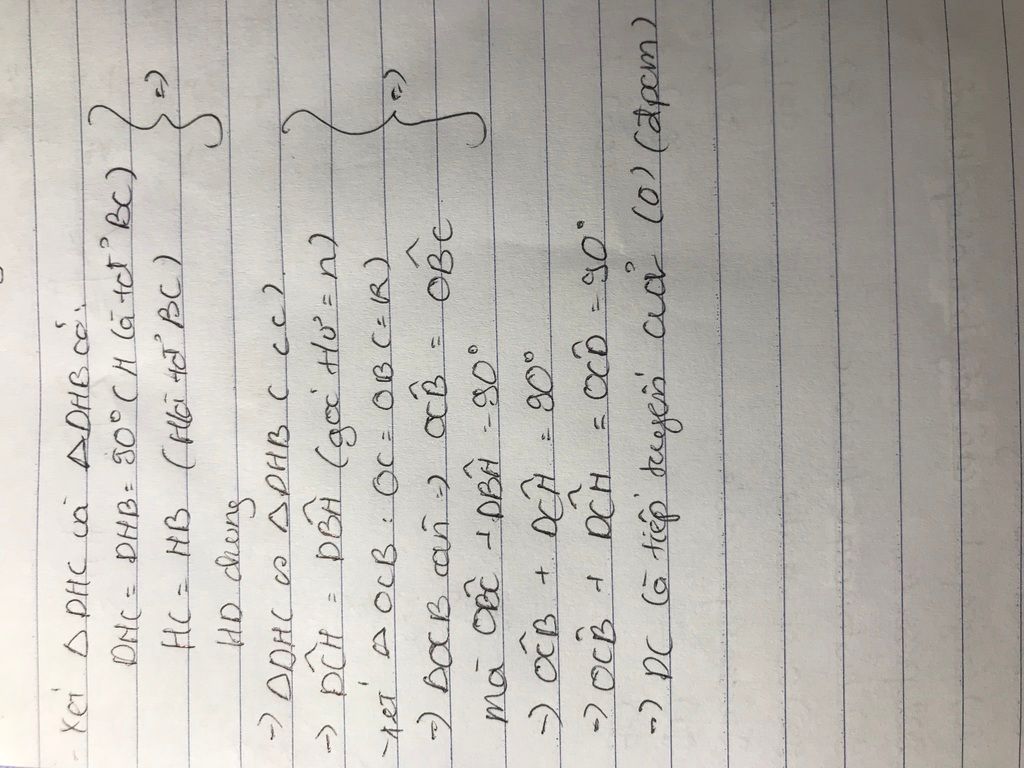 - Xét ΔDHC và ΔDHB có:
DHC = DHB = 90° (H là tđ' BC) } =>
HC = HB (H là tđ' BC)
HD chung
=> ΔDHC ∽ ΔDHB (CC)
=> DĈH = DB̂H (góc tứ = n)
- xét Δ OCB: OC = OB (= R)
=> ΔOCB cân => OĈB = OB̂C } =>
mà OB̂C + DB̂H = 90°
=> OĈB + DĈH = 90°
=> OĈB + DĈH = OĈD = 90°
=> DC là tiếp tuyến của (O) (đpcm)